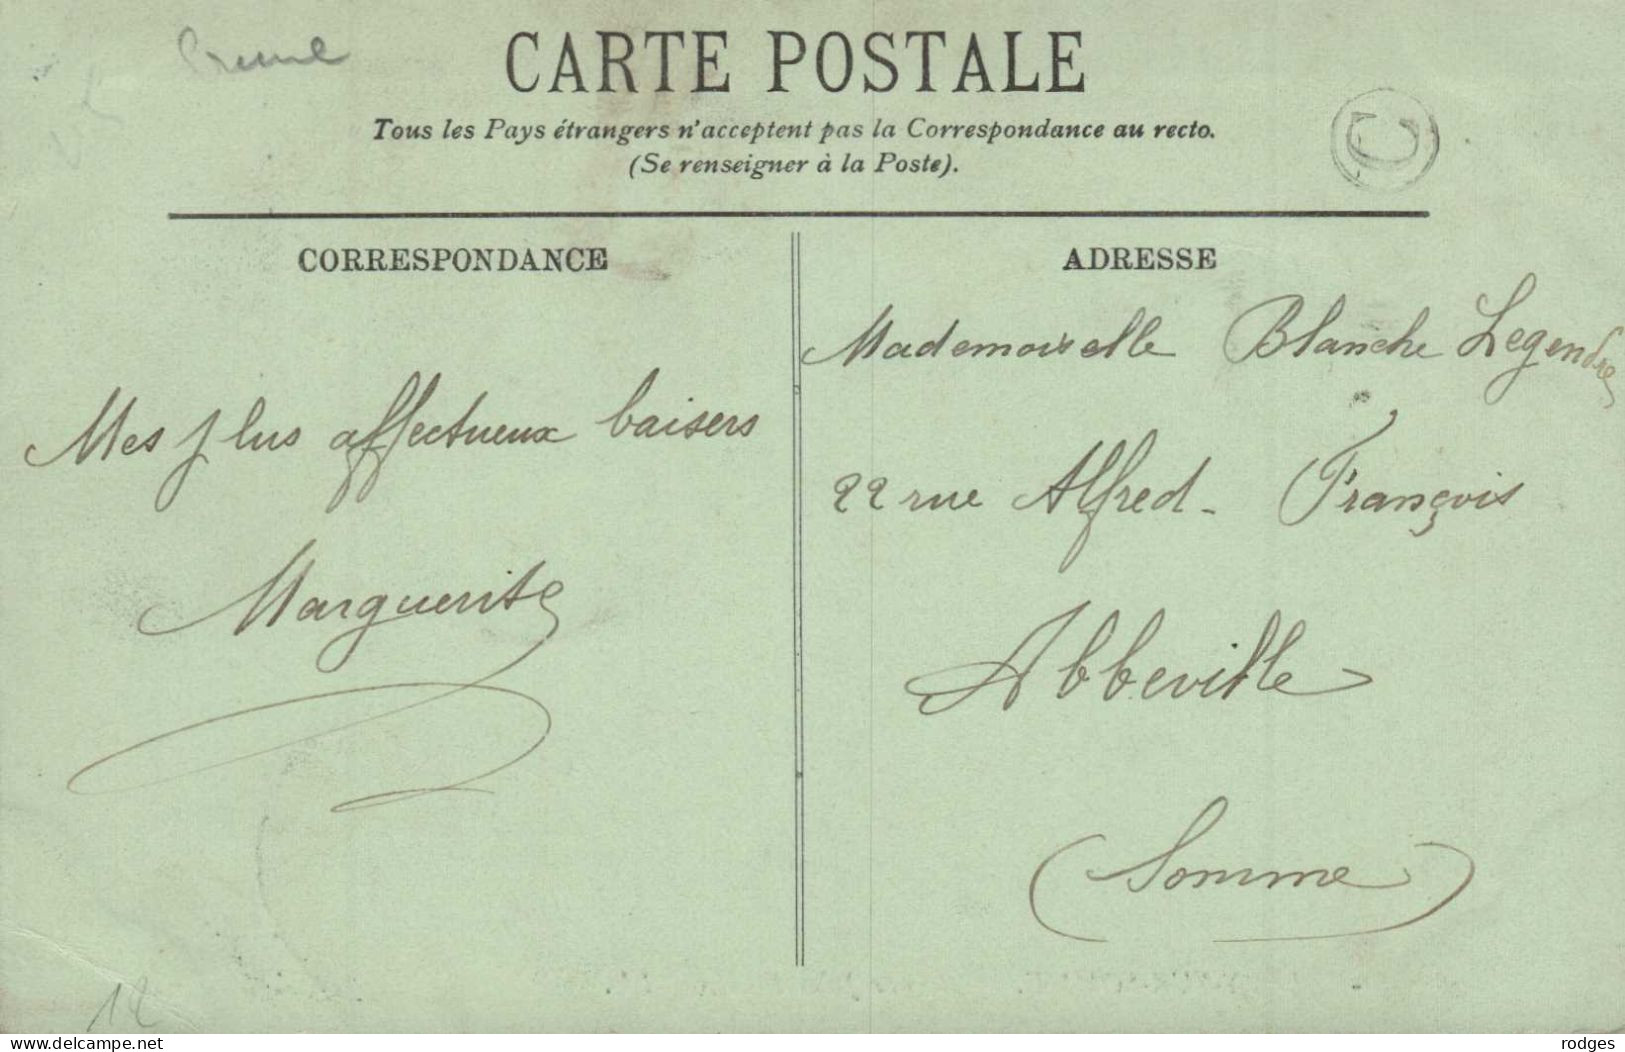 CARTE POSTALE
Tous les Pays étrangers n'acceptent pas la Correspondance au recto.
(Se renseigner à la Poste).
CORRESPONDANCE
Mes plus affectueux baisers
Marguerite
ADRESSE
Mademoiselle Blanche Legendre
22 rue Alfred-François
Abbeville
(Somme)
12
www.delcampe.net
rodges